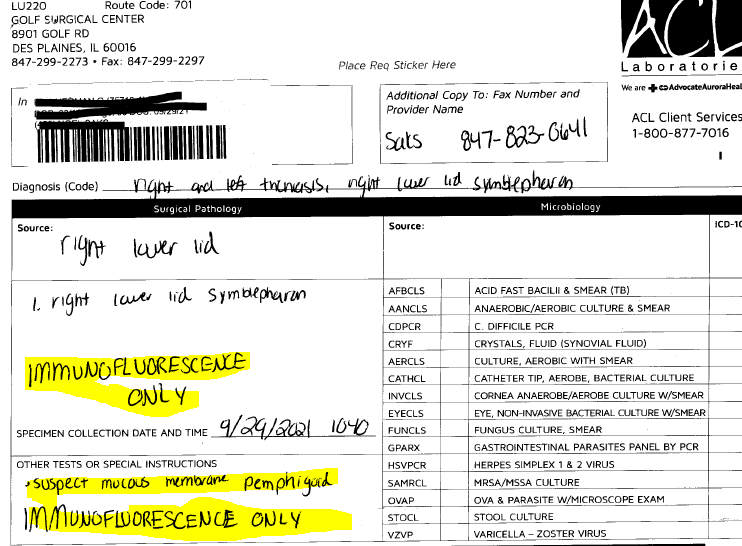 LU220 Route Code: 701
GOLF SURGICAL CENTER
8901 GOLF RD
DES PLAINES, IL 60016
847-299-2273 • Fax: 847-299-2297
Place Req Sticker Here
ACL
Laboratorie
We are AdvocateAuroraHeal
ACL Client Services
1-800-877-7016
In
09/29/21
Additional Copy To: Fax Number and
Provider Name
Saks 847-823-0641
Diagnosis (Code) right and left trichiasis, right lower lid symblepharon
Surgical Pathology
Source:
right lower lid
1. right lower lid symblepharon
IMMUNOFLUORESCENCE
ONLY
SPECIMEN COLLECTION DATE AND TIME 9/29/2021 1040
OTHER TESTS OR SPECIAL INSTRUCTIONS
• suspect mucous membrane pemphigoid
IMMUNOFLUORESCENCE ONLY
Microbiology
Source: ICD-10
AFBCLS ACID FAST BACILII & SMEAR (TB)
AANCLS ANAEROBIC/AEROBIC CULTURE & SMEAR
CDPCR C. DIFFICILE PCR
CRYF CRYSTALS, FLUID (SYNOVIAL FLUID)
AERCLS CULTURE, AEROBIC WITH SMEAR
CATHCL CATHETER TIP, AEROBE, BACTERIAL CULTURE
INVCLS CORNEA ANAEROBE/AEROBE CULTURE W/SMEAR
EYECLS EYE, NON-INVASIVE BACTERIAL CULTURE W/SMEAR
FUNCLS FUNGUS CULTURE, SMEAR
GPARX GASTROINTESTINAL PARASITES PANEL BY PCR
HSVPCR HERPES SIMPLEX 1 & 2 VIRUS
SAMRCL MRSA/MSSA CULTURE
OVAP OVA & PARASITE W/MICROSCOPE EXAM
STOCL STOOL CULTURE
VZVP VARICELLA – ZOSTER VIRUS